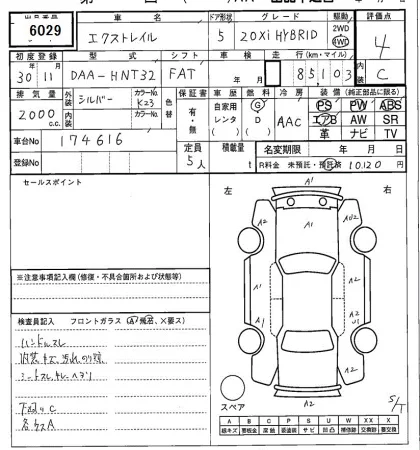 6029
車名
エクストレイル
ドア形状
5
グレード
20Xi HYBRID
駆動
2WD
4WD
評価点
4
C
初度登録
30年 11月
型式
DAA-HNT32
シフト
FAT
車検
年 月
走行(km・マイル)
85,103
排気量
2000 c.c.
外装
シルバー
カラーNo
K23
内装
カラーNo
色替
保証書
有・無
車歴
自家用
レンタ
燃料
G
D
冷房
AAC
装備(純正部品に限る)
PS PW ABS
エアB AW SR
革 ナビ TV
車台No
174616
定員
5人
積載量
t
名変期限 年 月 日
登録No
R料金 未預託・預託済 10120 円
セールスポイント
左
右
A1
A1
A2
A2
A1
A1
A2
A2
A2
※注意事項記入欄(修復・不具合箇所および状態等)
検査員記入 フロントガラス (A・飛石、×要ス)
ハンドルスレ
スペア
A B C P S U W X XX
線キズ 要板金 腐蝕 要塗装 サビ 凹凸 補修跡 交換跡 要交換